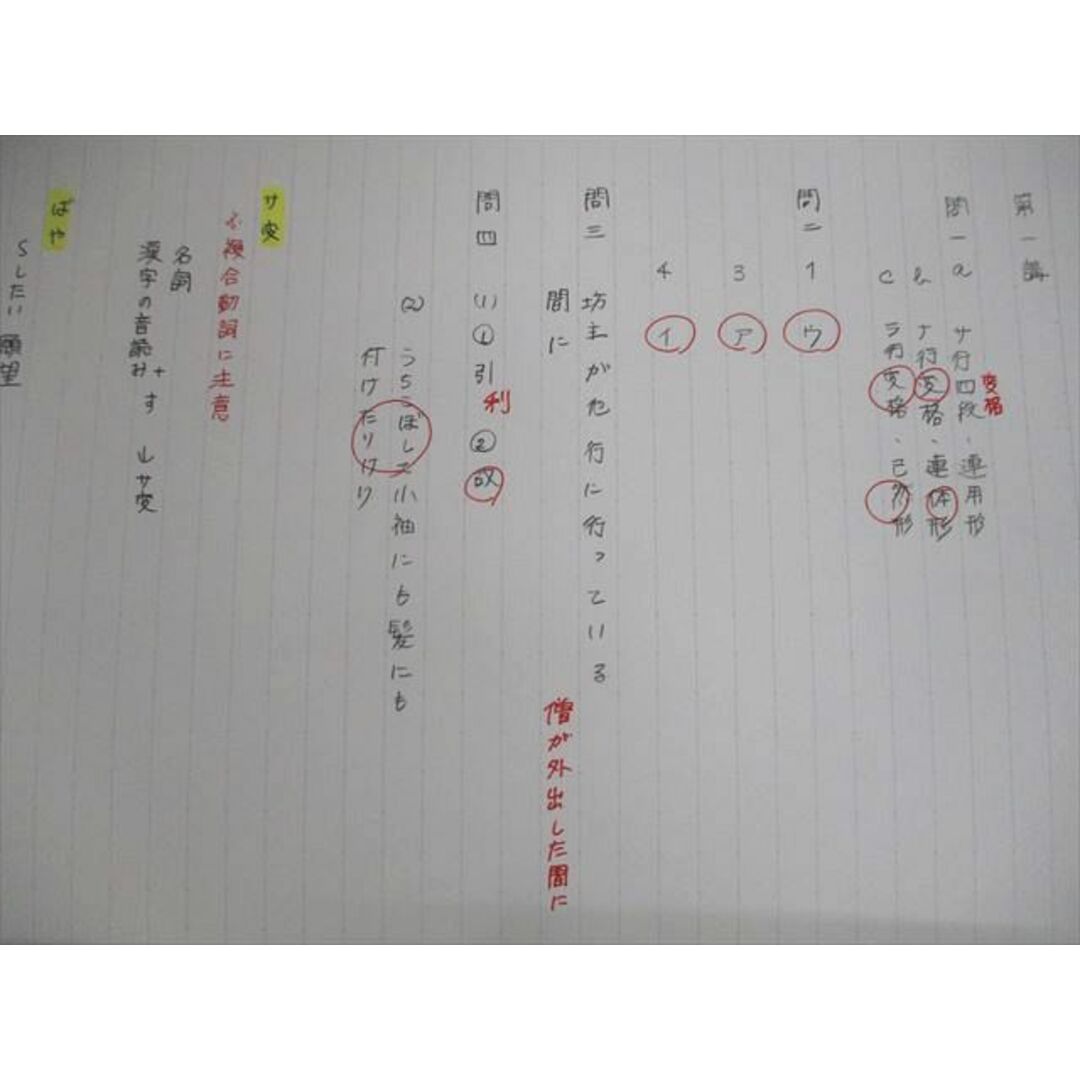 第一講
問一 a サ行四段・連用形
変格
b ナ行変格・連体形
c ラ行変格・已然形
問二 1 ウ
3 ア
4 イ
問三 坊主が他行に行っている
間に
僧が外出した間に
問四 (1) ① 引 ② 
利
(2) うちこぼして小袖にも髪にも
付けたりけり
サ変
複合動詞に注意
名詞
漢字の音読み + す
サ変
ばや
～したい 願望